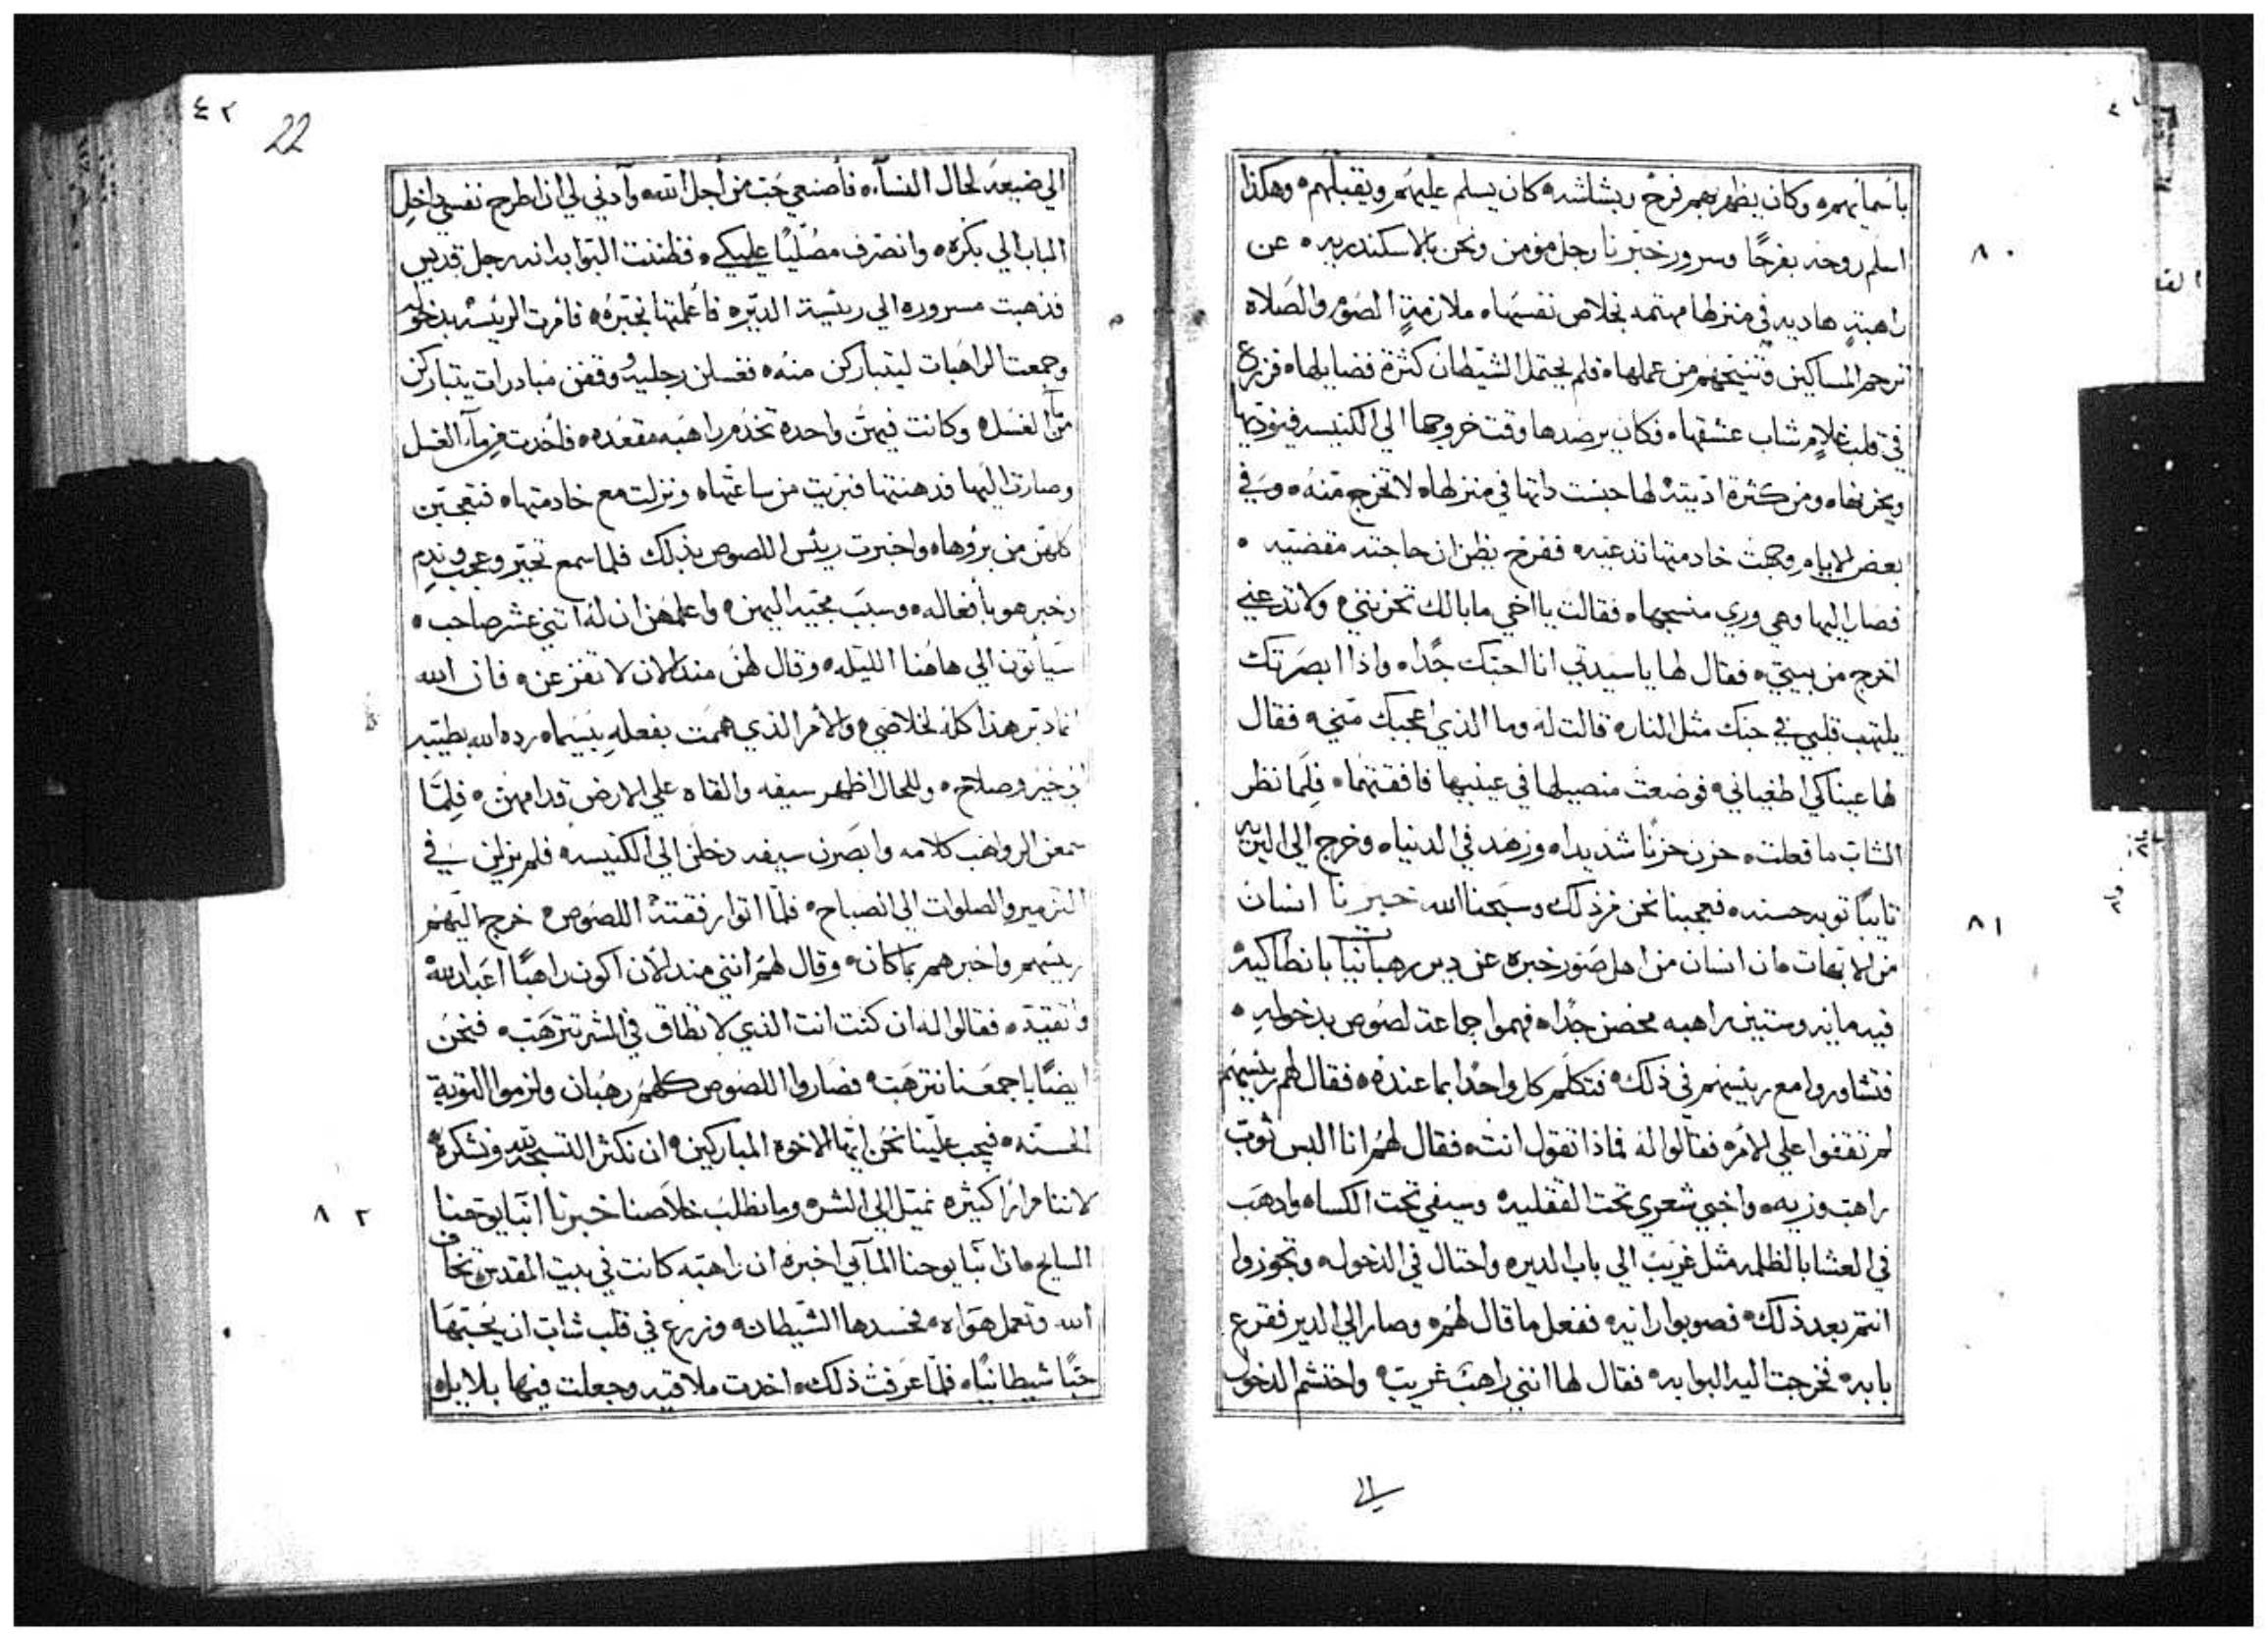 باسمائهم ه وكان يظهر لهم فرح وبشاشه ه كان يسلم عليهم ويقبلهم ه وهكذا
اسلم روحه بفرحًا وسرور خبرنا رجل مومن ونحن بالاسكندريه ه عن
٨٠
راهبةٍ هاديه في منزلها مهتمه بخلاص نفسها ه ملازمةٍ الصوم والصلاه
ترحم المساكين وتنيحهم من عملها ه فلم يحتمل الشيطان كثرة فضايلها ه فزرع
في قلب غلامٍ شاب عشقها ه فكان يرصدها وقت خروجها الي الكنيسه فيوذيها
ويحزنها ه ومن كثرة اذيته لها حبست ذاتها في منزلها ه لا تخرج منه ه وفي
بعض الايام وجهت خادمتها تدعيه ه ففرح يظن ان حاجته مقضيه ه
فصار اليها وهي وري منسجها ه فقالت يا اخي ما بالك تحزنني ه ولا تدعني
اخرج من بيتي ه فقال لها يا سيدتي انا احبك جدًا ه واذا ابصرتك
يلتهب قلبي في حبك مثل النار ه قالت له وما الذي اعجبك مني ه فقال
لها عيناكي اطغياني ه فوضعت منصيلها في عينيها فافقتهما ه فلما نظر
الشاب ما فعلت ه حزن حزنًا شديدا ه وزهد في الدنيا ه وخرج الي البريه
تايبًا توبه حسنه ه فعجبنا نحن من ذلك وسبحنا الله خبرنا انسان
٨١
من الاتقات بان انسان من اهل صور خبره عن دير رهبانيا بانطاكيه
فيه مايه وستين راهبه محصن جدًا ه فهموا جماعة لصوص بدخوله ه
فتشاوروا مع رييسهم في ذلك ه فتكلم كل واحدًا بما عنده ه فقال لهم رييسهم
لم تقفوا علي الامر ه فقالوا له فماذا تقول انت ه فقال لهم انا البس ثوب
راهب وزيه ه واخبي شعري تحت القفليه ه وسيفي تحت الكساه واذهب
في العشا بالظلمه مثل غريب الي باب الدير ه واحتال في الدخول ه وتجوزوا
انتم بعد ذلك ه فصوبوا رايه ه ففعل ما قال لهم ه وصار الي الدير فقرع
بابه ه فخرجت اليه البوابه ه فقال لها انني راهب غريب ه واحتشم الدخول
الي
٤٢
22
الي ضيعه لحال النساء ه فاصنعي محبه من اجل الله ه وآدني لي ان اطرح نفسي داخل
الباب الي بكره ه وانصرف مصليًا عليكي ه فظننت البوابه انه رجل قديس
فذهبت مسروره الي رييسة الديره فاعلمتها بخبره ه فامرت الرييسه بدخوله
وجمعت الراهبات ليتباركن منه ه فغسلن رجليه ووقفن مبادرات يتباركن
من ماء الغسل ه وكانت فيهن واحده تخدم راهبه مقعده ه فاخدت من ماء الغسل
وصارت اليها فدهنتها فبريت من ساعتها ه ونزلت مع خادمتها ه فتعجبين
كلهن من بروها ه واخبرت رييس اللصوص بذلك فلما سمع تحير وعجب وندم
وخبر هو بافعاله ه وسبب مجيه اليهن ه واعلمهن ان له اثني عشر صاحب ه
سياتون الي هاهنا الليله ه وقال لهن مند الان لا تفزعن ه فان الله
انما دبر هذا كله لخلاصي ه والامر الذي هممت بفعله بيسماه رده الله بطيبه
وخير وصلاح ه وللحال اظهر سيفه والقاه علي الارض قدامهن ه فلما
سمعن الرواهب كلامه وابصرن سيفه دخلن الي الكنيسه ه فلم يزلين في
التزمير والصلوات الي الصباح ه فلما اتوا رفقته اللصوص ه خرج اليهم
رييسهم واخبرهم بما كان ه وقال لهم انني مند الان اكون راهبًا اعبد الله
واتقيه ه فقالوا له ان كنت انت الذي لا تطاق في الشر تترهب ه فنحن
ايضًا باجمعنا نترهب ه فصاروا اللصوص كلهم رهبان ولزموا التوبة
الحسنه ه فيجب علينا نحن ايها الاخوه المباركين ه ان نكثر التسبحه لله ونشكره
لاننا مرارًا كثيره نميل الي الشر ه وما نطلب خلاصنا خبرنا انبا يوحنا
٨٢
السايح بان انبا يوحنا المآبي اخبره ان راهبه كانت في بيت المقدس تخاف
الله وتعمل هواه ه فحسدها الشيطان ه وزرع في قلب شاب ان يحبها
حبًا شيطانيًا ه فلما عرفت ذلك ه اخدت ملاقيه وجعلت فيها بلايله